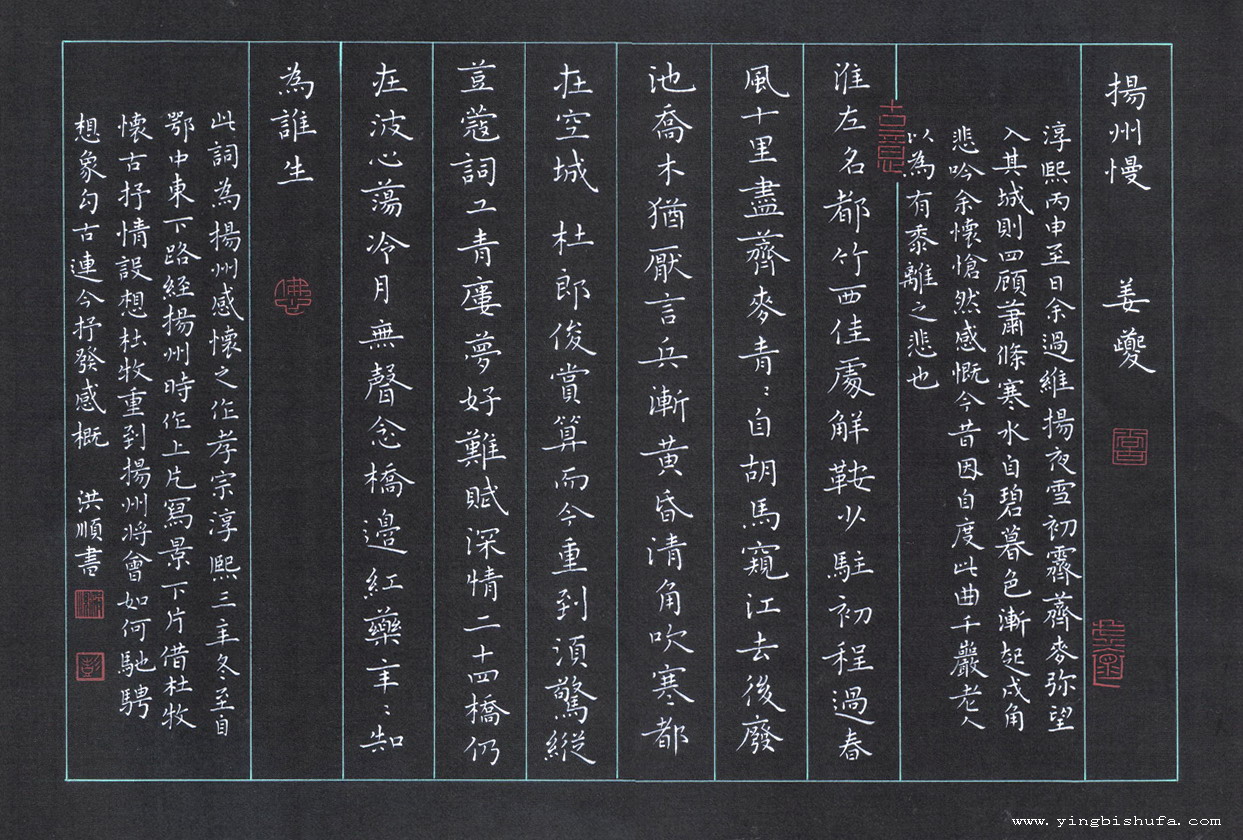 揚州慢 姜夔
淳熙丙申至日余過維揚夜雪初霽薺麥弥望
入其城則四顧蕭條寒水自碧暮色漸起戍角
悲吟余懷愴然感慨今昔因自度此曲千巖老人
以為有黍離之悲也
淮左名都竹西佳處解鞍少駐初程過春
風十里盡薺麥青〻自胡馬窺江去後廢
池喬木猶厭言兵漸黄昏清角吹寒都
在空城 杜郎俊賞算而今重到須驚縱
荳蔻詞工青廔夢好難賦深情二十四橋仍
在波心蕩冷月無聲念橋邊紅藥年〻知
為誰生
此詞為揚州感懷之作孝宗淳熙三年冬至自
鄂中東下路經揚州時作上片寫景下片借杜牧
懷古抒情設想杜牧重到揚州將會如何馳騁
想象勾古連今抒發感概 洪順書
www.yingbishufa.com